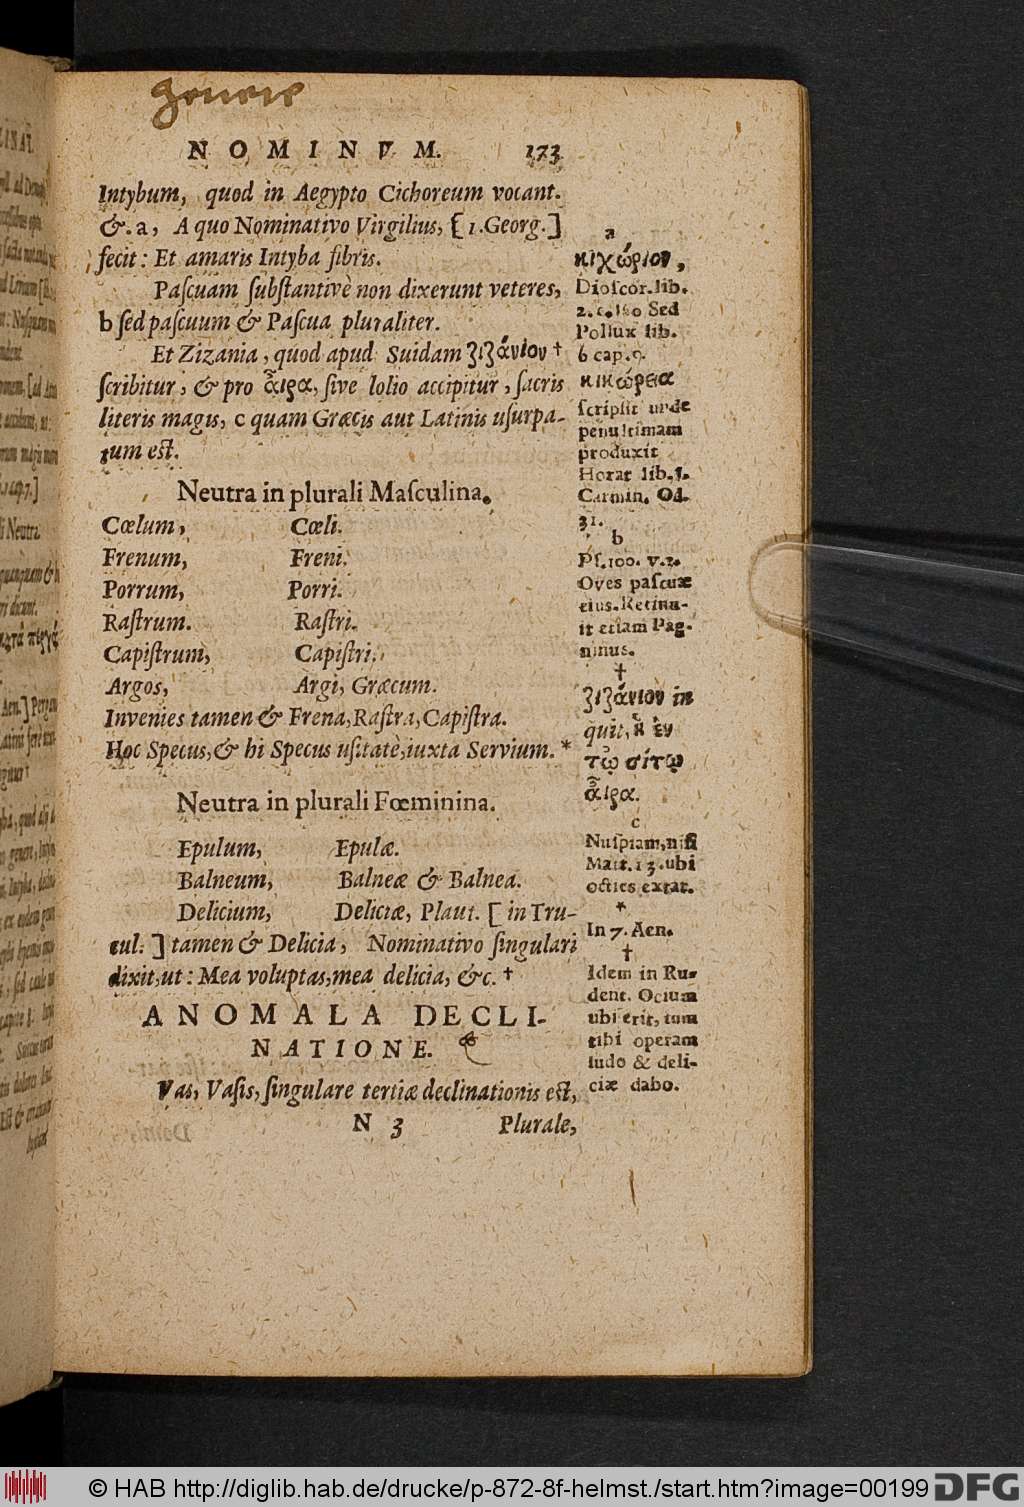 genere
NOMINVM. 173
Intybum, quod in Aegypto Cichoreum vocant.
&.a, A quo Nominativo Virgilius, [1.Georg.]
fecit: Et amaris Intyba fibris.
Paſcuam ſubſtantivè non dixerunt veteres,
b ſed paſcuum & Paſcua pluraliter.
Et Zizania, quod apud Suidam ζιζάνιον †
ſcribitur, & pro αἶρα, ſive lolio accipitur, ſacris
literis magis, c quam Græcis aut Latinis uſurpa-
tum eſt.
Neutra in plurali Maſculina.
Cœlum, Cœli.
Frenum, Freni.
Porrum, Porri.
Raſtrum. Raſtri.
Capiſtrum, Capiſtri.
Argos, Argi, Græcum.
Invenies tamen & Frena, Raſtra, Capiſtra.
Hoc Specus, & hi Specus uſitatè, iuxta Servium. *
Neutra in plurali Fœminina.
Epulum, Epulæ.
Balneum, Balneæ & Balnea.
Delicium, Deliciæ, Plaut. [in Tru-
cul.] tamen & Delicia, Nominativo ſingulari
dixit, ut: Mea voluptas, mea delicia, &c. †
ANOMALA DECLI-
NATIONE.
Vas, Vaſis, ſingulare tertiæ declinationis eſt,
N 3 Plurale,
a
κιχώριον,
Dioſcor. lib.
2. c. 160 Sed
Pollux lib.
6 cap. 9.
κικώρεια
ſcripſit unde
penultimam
produxit
Horat lib. 1.
Carmin. Od.
31.
b
Pſ. 100. v. 3.
Oves paſcuæ
eius. Retinu-
it etiam Pag-
ninus.
†
ζιζάνιον in
quit, ἡ ἐν
τῷ σίτῳ
αἶρα.
c
Nuſpiam, niſi
Matt. 13. ubi
octies extat.
*
In 7. Aen.
†
Idem in Ru-
dent. Ocium
ubi erit, tum
tibi operam
ludo & deli-
ciæ dabo.
© HAB http://diglib.hab.de/drucke/p-872-8f-helmst./start.htm?image=00199 DFG